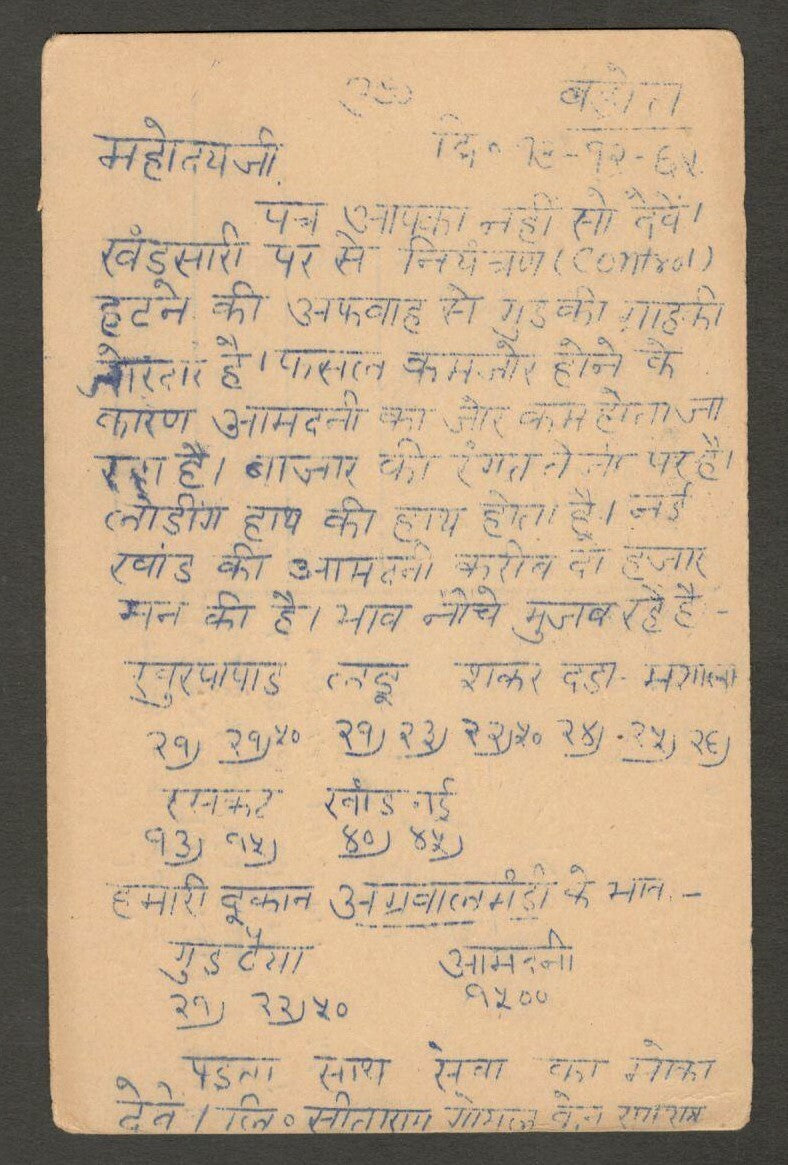 बड़ौत
महोदयजी, दि॰ १८-१२-६५
पत्र आपका नहीं सो देवें।
खंडसारी पर से नियंत्रण (Control)
हटने की अफवाह से गुड की ग्राहकी
जोरदार है। फसल कमजोर होने के
कारण आमदनी का जोर कम होता जा
रहा है। बाजार की रंगत तेजी पर है।
लोडींग हाथ की हाथ होता है। नई
खांड की आमदनी करीब दो हजार
मन की है। भाव नीचे मुजब रहे है -
खुरपापाड लड्डू शकर दडा- मसाला
२१) २१)५० २१) २३) २२)५० २४) - २५) २६)
रसकट खांड नई
१३) १५) ४०) ४५)
हमारी दूकान अग्रवालमंडी के भाव -
गुड ढैया आमदनी
२१) २२)५० १५००
पडता साथ सेवा का मोका
देवें। लि॰ सीताराम